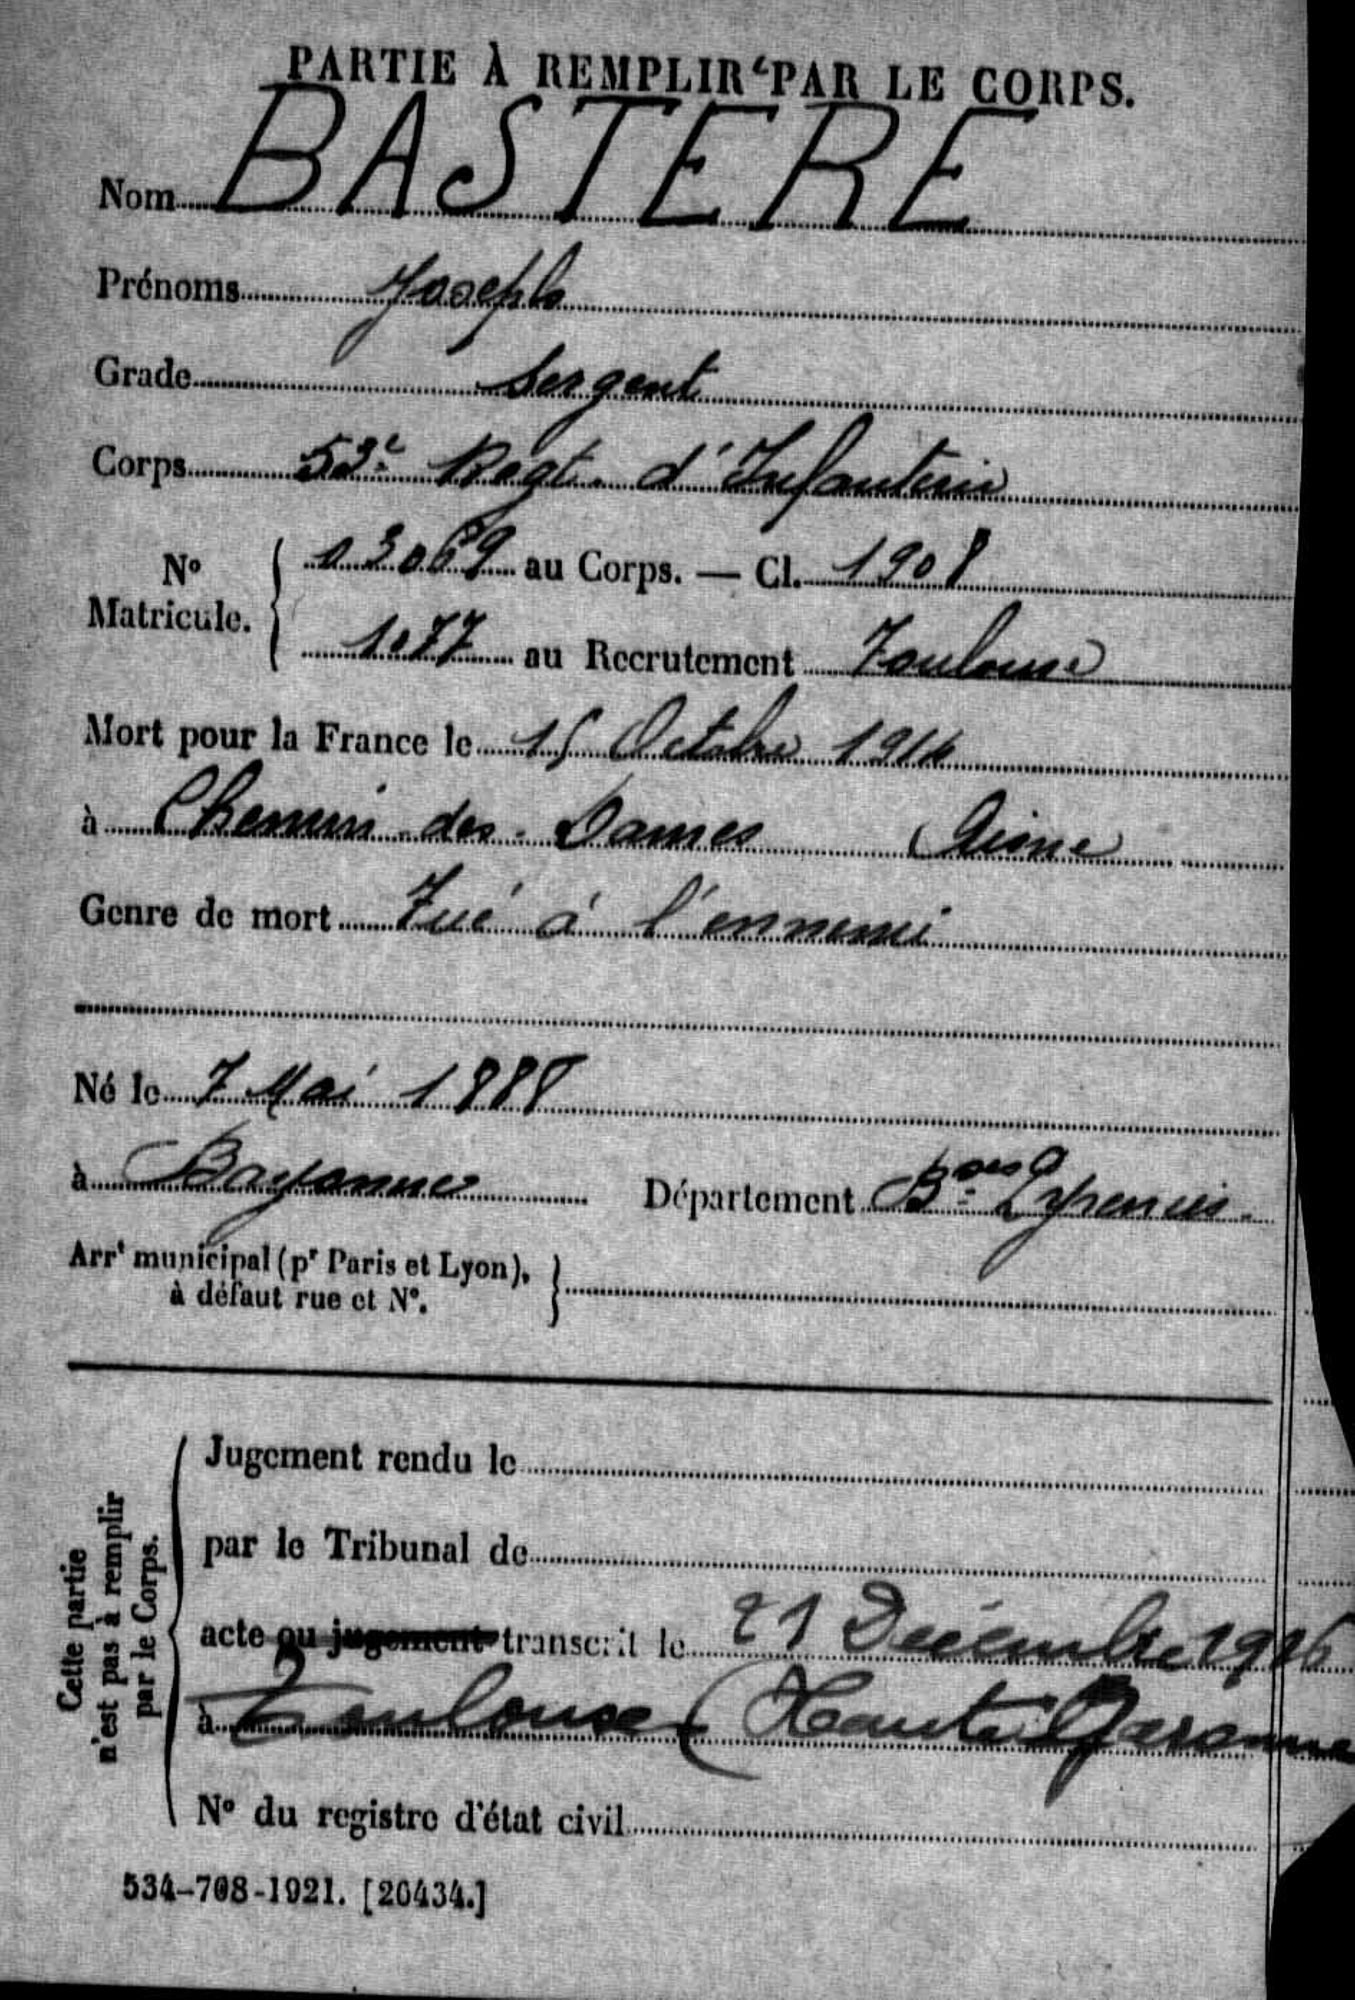 PARTIE À REMPLIR PAR LE CORPS.
Nom BASTERE
Prénoms Joseph
Grade Sergent
Corps 53e Regt. d'Infanterie
No Matricule. 03069 au Corps. — Cl. 1908
1077 au Recrutement Toulouse
Mort pour la France le 15 Octobre 1914
à Chemin des Dames (Aisne
Genre de mort Tué à l'ennemi
Né le 7 Mai 1888
à Bayonne Département Bses Pyrenées.
Arrt municipal (pr Paris et Lyon), à défaut rue et No.
Cette partie n'est pas à remplir par le Corps.
Jugement rendu le
par le Tribunal de
acte ou jugement transcrit le 21 Décembre 1916
à Toulouse (Haute Garonne
No du registre d'état civil
534-708-1921. [20434.]